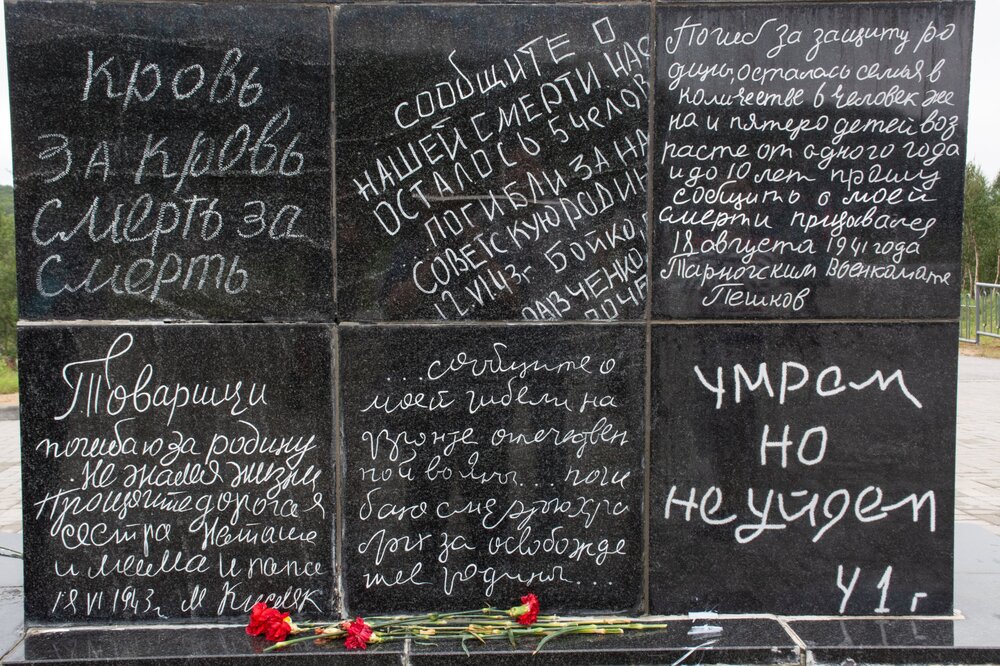 Кровь
за кровь
смерть за
смерть
СООБЩИТЕ О
НАШЕЙ СМЕРТИ НАС
ОСТАЛОСЬ 5 ЧЕЛОВ
ПОГИБЛИ ЗА НА
СОВЕТСКУЮ РОДИН
2.VII43г. БОЙКО
РАВЧЕНКО
Погиб за защиту ро
дины, осталась семья в
количестве 6 человек же
на и пятеро детей воз
расте от одного года
и до 10 лет прошу
сообщить о моей
смерти призывался
18 августа 1941 года
Тарногским Военкамате
Пешков
Товарищи
погибаю за родину
Не жалея жизни
Прощайте дорогая
сестра Наташа
и мама и папа
18 VI 1943 г М Кисляк
...сообщите о
моей гибели на
фронте отечествен
ной войны... поги
баю смертью хра
брых за освобожде
ние родины...
умрем
но
не уйдем
41 г